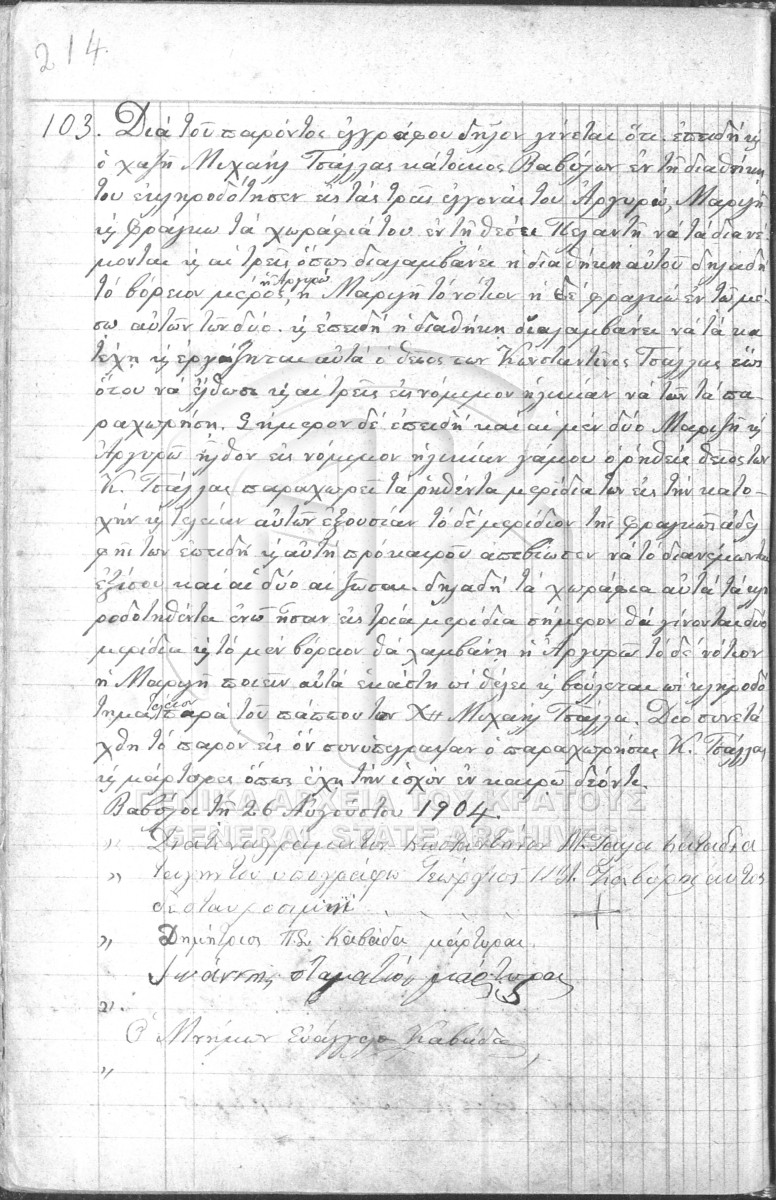 214.
103. Διά τοῦ παρόντος ἐγγράφου δῆλον γίνεται ὅτι. ἐπειδή κ
ὁ χατζῆ Μιχαήλ Τσάλλας κάτοικος Βαβύλων ἐν τῇ διαθήκῃ
του ἐκληροδότησεν εἰς τάς τρεῖς ἐγγονάς του Ἀργυρώ, Μαριγῆ
κ φραγκω τά χωράφιά του ἐν τῇ θέσει νά τά διανέ
μονται κ αἱ τρεῖς ὅπως διαλαμβάνει ἡ διαθήκη αὐτοῦ δηλαδή
τό βόρειον μέρος, ἡ Ἀργυρώ ἡ Μαριγῆ τό νότιον ἡ δέ φραγκώ ἐν τῷ μέ
σῳ αὐτῶν τῶν δύο. κ ἐπειδή ἡ διαθήκη διαλαμβάνει νά τά κα
τέχῃ κ ἐργάζηται αὐτά ὁ θεῖος των Κωνσταντῖνος Τσάλλας ἕως
ὅτου νά ἔλθωσι κ αἱ τρεῖς εἰς νόμιμον ἡλικίαν νά τῶν τά πα
ραχωρήσῃ. Σήμερον δέ ἐπειδή καί αἱ μέν δύο Μαριγῆ κ
Ἀργυρῶ ἦλθον εἰς νόμιμον ἡλικίαν γάμου ὁ ῥηθείς θεῖος των
Κ. Τσάλλας παραχωρεῖ τά ῥηθέντα μερίδια των εἰς τήν κατο
χήν κ τελείαν αὐτῶν ἐξουσίαν τό δέ μερίδιον τῆς φραγκῶς ἀδελ
φῆς των ἐπειδή κ αὐτή πρό καιροῦ ἀπεβίωσεν νά τό διανέμωνται
ἐξίσου καί αἱ δύο αἱ ζῶσαι. δηλαδή τά χωράφια αὐτά τά κλη
ροδοτηθέντα ἐνῷ ἦσαν εἰς τρία μερίδια σήμερον θά γίνονται δύο
μερίδια κ τό μέν βόρειον θά λαμβάνῃ ἡ Ἀργυρῶ τό δέ νότιον
ἡ Μαριγῆ ποιεῖν αὐτά ἑκάστη ὡς θέλει κ βούλεται ὡς κληροδό
τημα τέλειον παρά τοῦ πάππου των Χη Μιχαήλ Τσάλλα. Διό συνετά
χθη τό παρόν εἰς ὅν συνυπέγραψαν ὁ παραχωρήσας Κ. Τσάλλας
κ μάρτυρες ὅπως ἔχῃ τήν ἰσχύν ἐν καιρῷ δέοντι.
Βαβύλοι τῇ 26 Αὐγούστου 1904.
" Διά τόν ἀγράμματον Κωσταντῆνον Μ. Τσαλα
" τον υπογράφω Γεώργιος αυτος
δέ σταυροσιμίνι +
" Δημήτριος Πα Καβάδα μάρτυρας
Ιωάννης σταματίου μάρτυρας
"
Ὁ Μνήμων Εὐάγγελο Καβάδα
"
ΓΕΝΙΚΑ ΑΡΧΕΙΑ ΤΟΥ ΚΡΑΤΟΥΣ
GENERAL STATE ARCHIVES